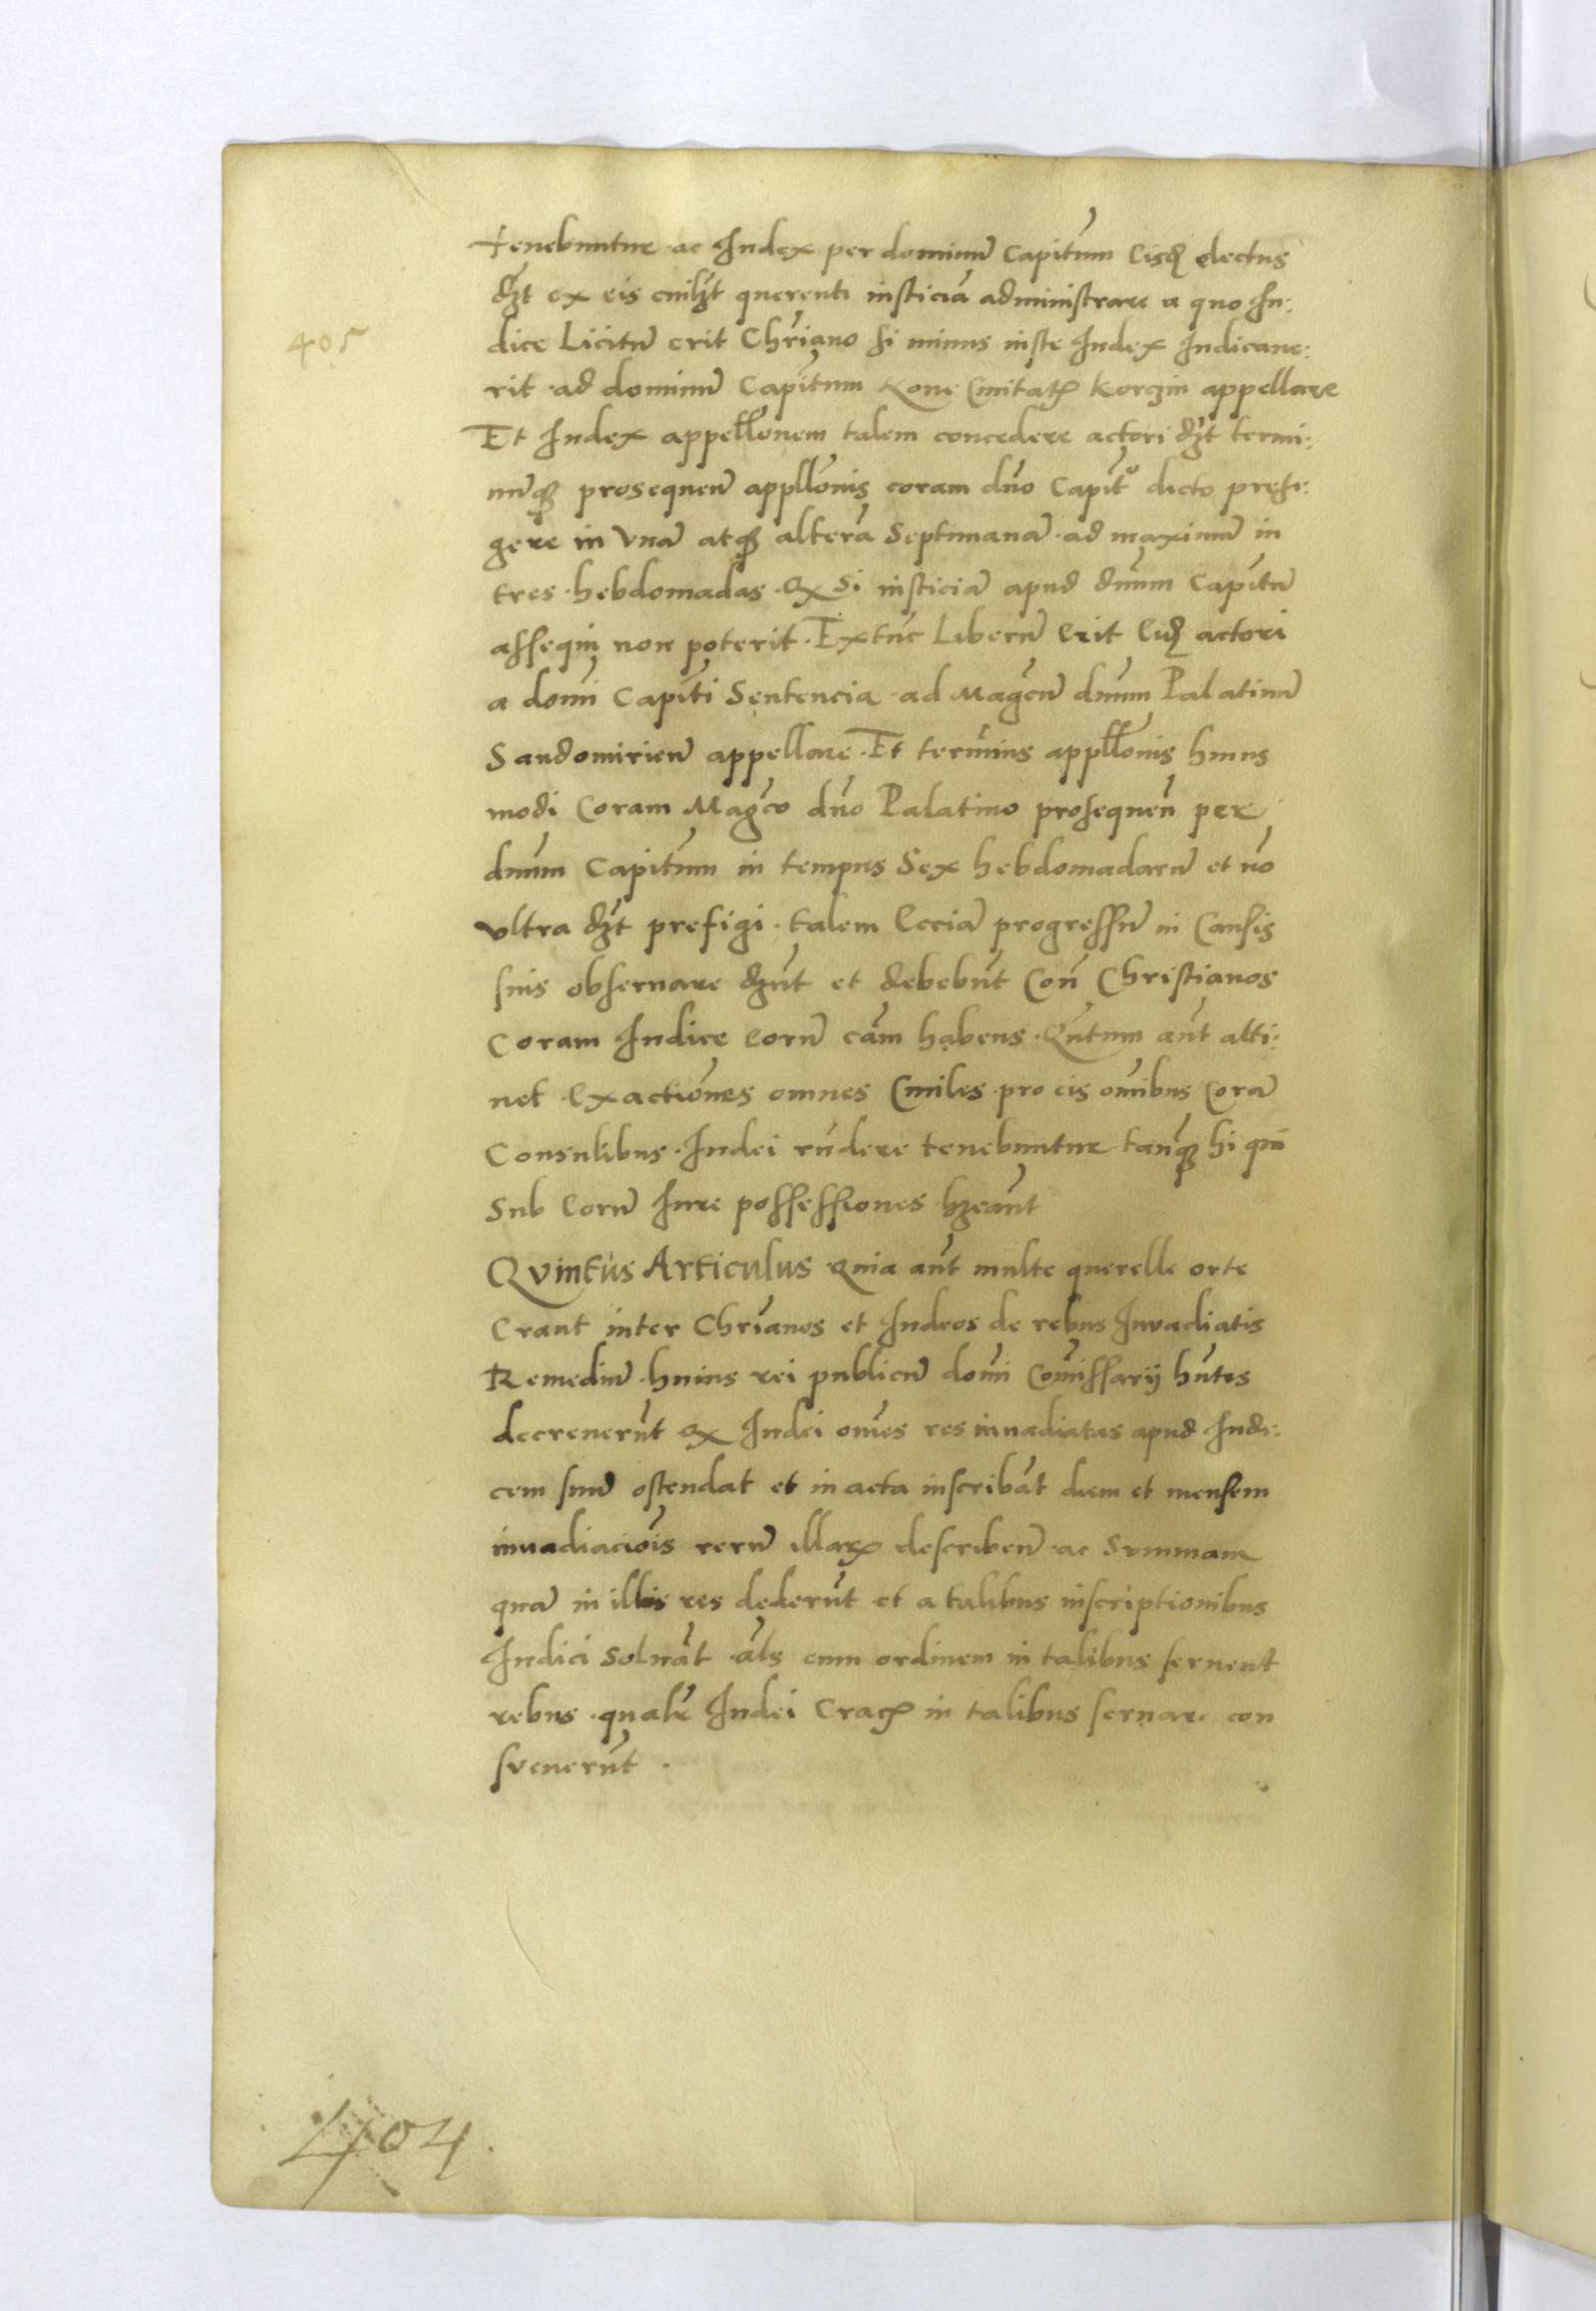 tenebuntur ac Iudex per dominu᷉ Capit᷉um eisd᷉ electus
dz᷉t ex eis cuilz᷉t querenti iusticia᷉ administrare a quo Iu:
405
dice Licitu᷉ erit Chr᷉iano si minus iuste Iudex Iudicaue:
rit ad dominu᷉ Capit᷉um Ro᷉ne Ciuitat᷉ Korczin appellare
Et Iudex appell᷉onem talem concedere actori dz᷉t termi:
nu᷉q᷉ prosequen᷉ appll᷉onis coram dn᷉o Capit᷉o dicto prefi:
gere in Vna᷉ atq᷉ altera᷉ Septimana᷉ ad maximu᷉ in
tres hebdomadas Qx Si iusticia᷉ apud dn᷉um Capit᷉u᷉
assequi non poterit. Extu᷉c Liberu᷉ erit eid᷉ actori
a dom᷉i Capit᷉i Sentencia ad Mag᷉cu᷉ dn᷉um Palatinu᷉
Sandomirien᷉ appellare. Et term᷉ius appll᷉onis huius
modi Coram Mag᷉co dn᷉o Palatino prosequen᷉ per
dn᷉um Capit᷉um in tempus Sex hebdomadaru᷉ et no᷉
vltra dz᷉t prefigi. talem Eccia᷉ progressu᷉ in Causis
suis obseruare dz᷉nt et debebu᷉t Con᷉ Christianos
Coram Iudice eoru᷉ ca᷉m habens. Qu᷉tum au᷉t atti:
net Exactio᷉nes omnes Ciuiles pro eis om᷉ibus Cora᷉
Consulibus Iudei ru᷉dere tenebuntur tanq᷉ hi qui
Sub eoru᷉ Iure possessiones hz᷉eant
Quintus Articulus Quia au᷉t multe querelle orte
Erant inter Chr᷉ianos et Iudeos de rebus Inuadiatis
Remediu᷉ huius rei publicu᷉ dom᷉i Com᷉issarij hu᷉tes
decreueru᷉t Qx Iudei om᷉es res inuadiatas apud Iudi:
cem suu᷉ ostendat et in acta inscriba᷉t diem et mensem
inuadiacio᷉is reru᷉ illarx describen᷉ ac Summam
qua᷉ in illis res dederu᷉t et a talibus inscriptionibus
Iudici Solua᷉t al᷉s eum ordinem in talibus seruent
rebus quale᷉ Iudei Crac᷉ in talibus seruare con
sueueru᷉t.
404.